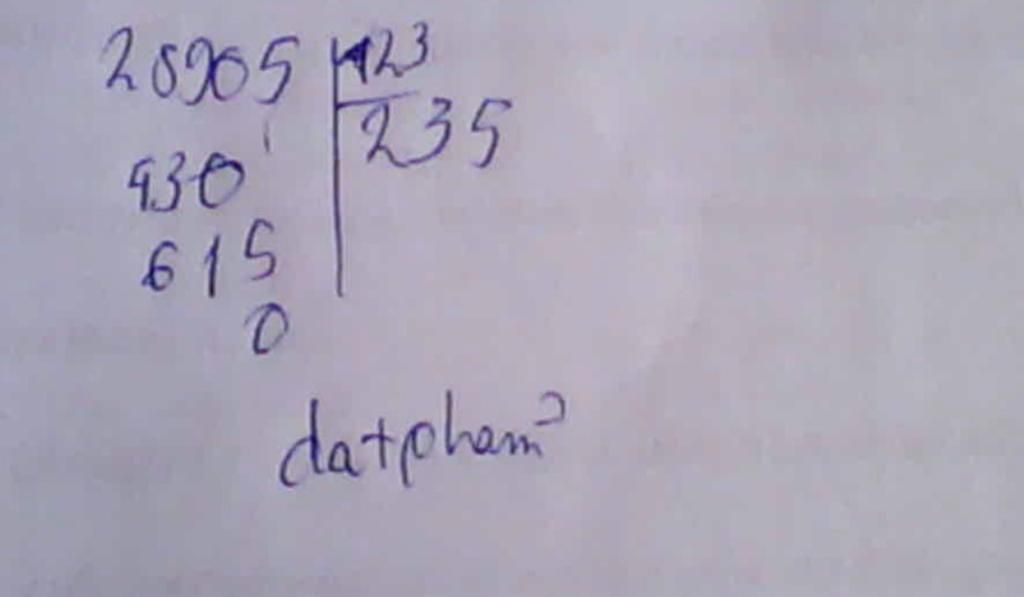 28905 123
235
430
615
0
datpham